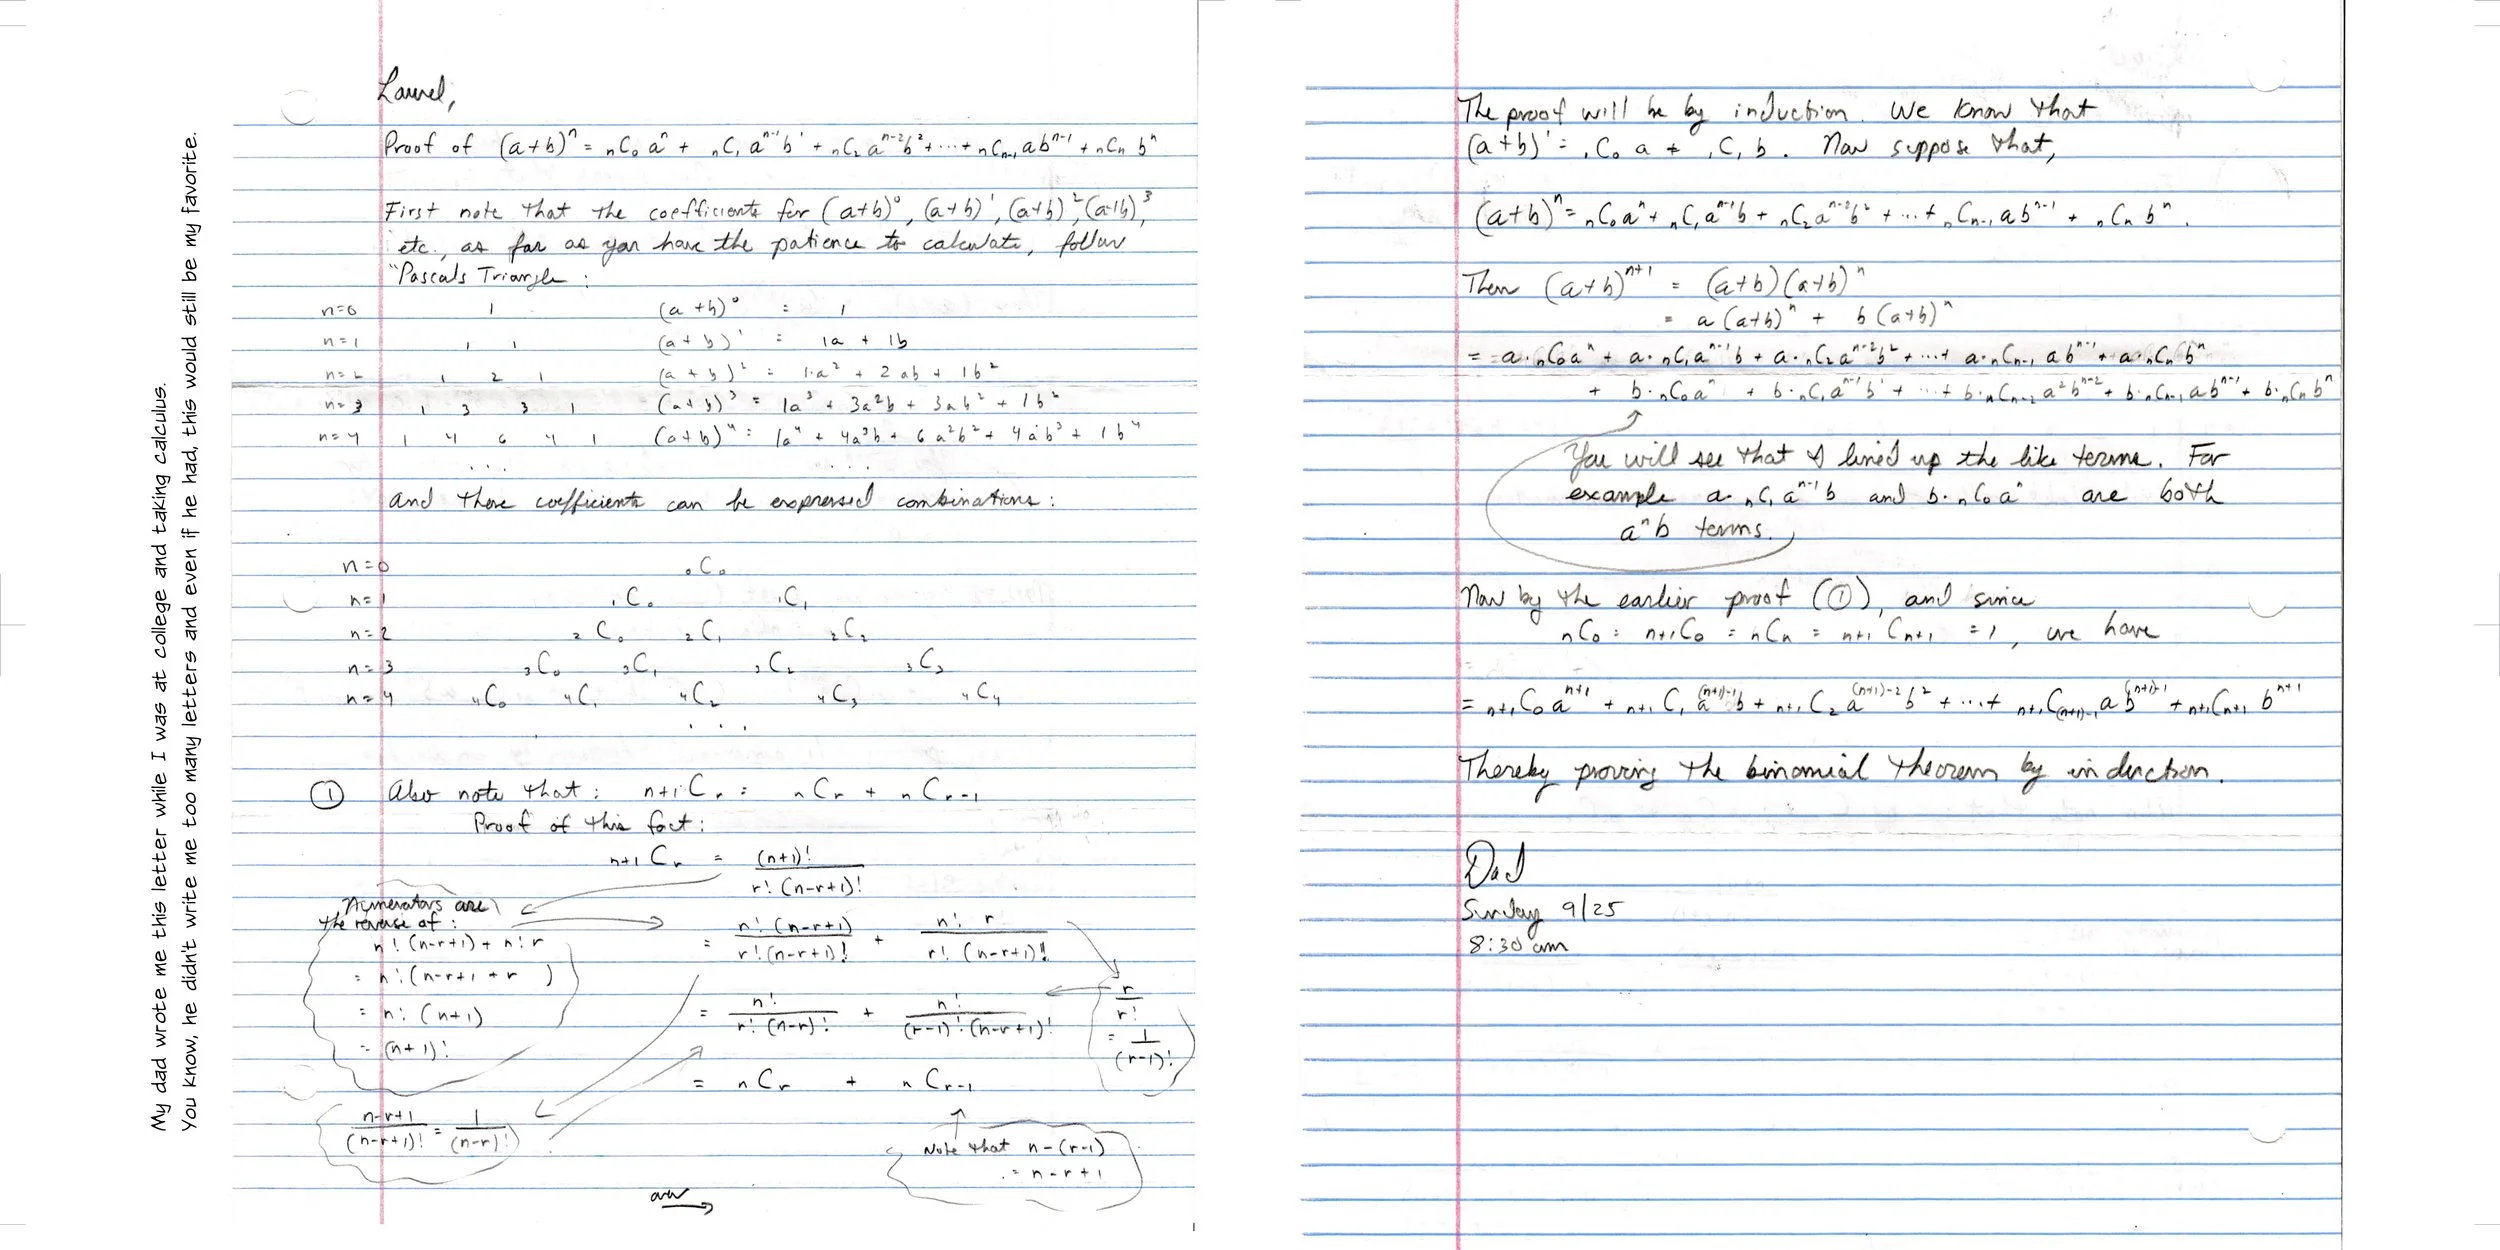 My dad wrote me this letter while I was at college and taking calculus.
You know, he didn't write me too many letters and even if he had, this would still be my favorite.
Laurel,
Proof of (a+b)ⁿ = ₙC₀ aⁿ + ₙC₁ aⁿ⁻¹b¹ + ₙC₂ aⁿ⁻²b² + ··· + ₙCₙ₋₁ abⁿ⁻¹ + ₙCₙ bⁿ
First note that the coefficients for (a+b)⁰, (a+b)¹, (a+b)², (a+b)³,
etc., as far as you have the patience to calculate, follow
"Pascals Triangle :
n=0 1 (a+b)⁰ = 1
n=1 1 1 (a+b)¹ = 1a + 1b
n=2 1 2 1 (a+b)² = 1·a² + 2ab + 1b²
n=3 1 3 3 1 (a+b)³ = 1a³ + 3a²b + 3ab² + 1b³
n=4 1 4 6 4 1 (a+b)⁴ = 1a⁴ + 4a³b + 6a²b² + 4ab³ + 1b⁴
... ...
and these coefficients can be expressed combinations:
n=0 ₀C₀
n=1 ₁C₀ ₁C₁
n=2 ₂C₀ ₂C₁ ₂C₂
n=3 ₃C₀ ₃C₁ ₃C₂ ₃C₃
n=4 ₄C₀ ₄C₁ ₄C₂ ₄C₃ ₄C₄
...
① Also note that: ₙ₊₁Cᵣ = ₙCᵣ + ₙCᵣ₋₁
Proof of this fact:
ₙ₊₁Cᵣ = (n+1)! / r!(n-r+1)!
Numerators are
the reverse of:
n!(n-r+1) + n!r
= n!(n-r+1+r )
= n!(n+1)
= (n+1)!
= n!(n-r+1) / r!(n-r+1)! + n! r / r!(n-r+1)!
= n! / r!(n-r)! + n! / (r-1)!(n-r+1)!
r / r!
= 1 / (r-1)!
= ₙCᵣ + ₙCᵣ₋₁
n-r+1 / (n-r+1)! = 1 / (n-r)!
Note that n-(r-1)
= n-r+1
over
The proof will be by induction. We know that
(a+b)¹ = ₁C₀ a + ₁C₁ b. Now suppose that,
(a+b)ⁿ = ₙC₀aⁿ + ₙC₁aⁿ⁻¹b + ₙC₂aⁿ⁻²b² + ··· + ₙCₙ₋₁abⁿ⁻¹ + ₙCₙbⁿ.
Then (a+b)ⁿ⁺¹ = (a+b)(a+b)ⁿ
= a(a+b)ⁿ + b(a+b)ⁿ
= a·ₙC₀aⁿ + a·ₙC₁aⁿ⁻¹b + a·ₙC₂aⁿ⁻²b² + ··· + a·ₙCₙ₋₁abⁿ⁻¹ + a·ₙCₙbⁿ
+ b·ₙC₀aⁿ + b·ₙC₁aⁿ⁻¹b¹ + ··· + b·ₙCₙ₋₂a²bⁿ⁻² + b·ₙCₙ₋₁abⁿ⁻¹ + b·ₙCₙbⁿ
You will see that I lined up the like terms. For
example a·ₙC₁aⁿ⁻¹b and b·ₙC₀aⁿ are both
aⁿb terms.
Now by the earlier proof (①), and since
ₙC₀ = ₙ₊₁C₀ = ₙCₙ = ₙ₊₁Cₙ₊₁ = 1, we have
= ₙ₊₁C₀aⁿ⁺¹ + ₙ₊₁C₁a⁽ⁿ⁺¹⁾⁻¹b + ₙ₊₁C₂a⁽ⁿ⁺¹⁾⁻²b² + ··· + ₙ₊₁C₍ₙ₊₁₎₋₁ab⁽ⁿ⁺¹⁾⁻¹ + ₙ₊₁Cₙ₊₁bⁿ⁺¹
Thereby proving the binomial theorem by induction.
Dad
Sunday 9/25
8:30 am